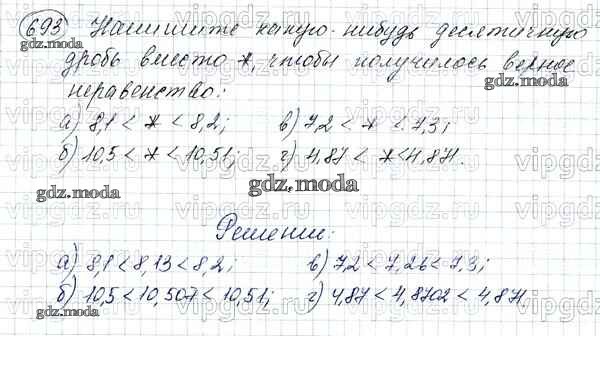 693 Напишите какую-нибудь десятичную
дробь вместо *, чтобы получилось верное
неравенство:
а) 8,1 < * < 8,2; в) 7,2 < * < 7,3;
б) 10,5 < * < 10,51; г) 4,87 < * < 4,871.
Решение:
а) 8,1 < 8,13 < 8,2; в) 7,2 < 7,26 < 7,3;
б) 10,5 < 10,507 < 10,51; г) 4,87 < 4,8702 < 4,871.
gdz.moda
gdz.moda
gdz.moda
gdz.moda
gdz.moda
gdz.moda
vipgdz